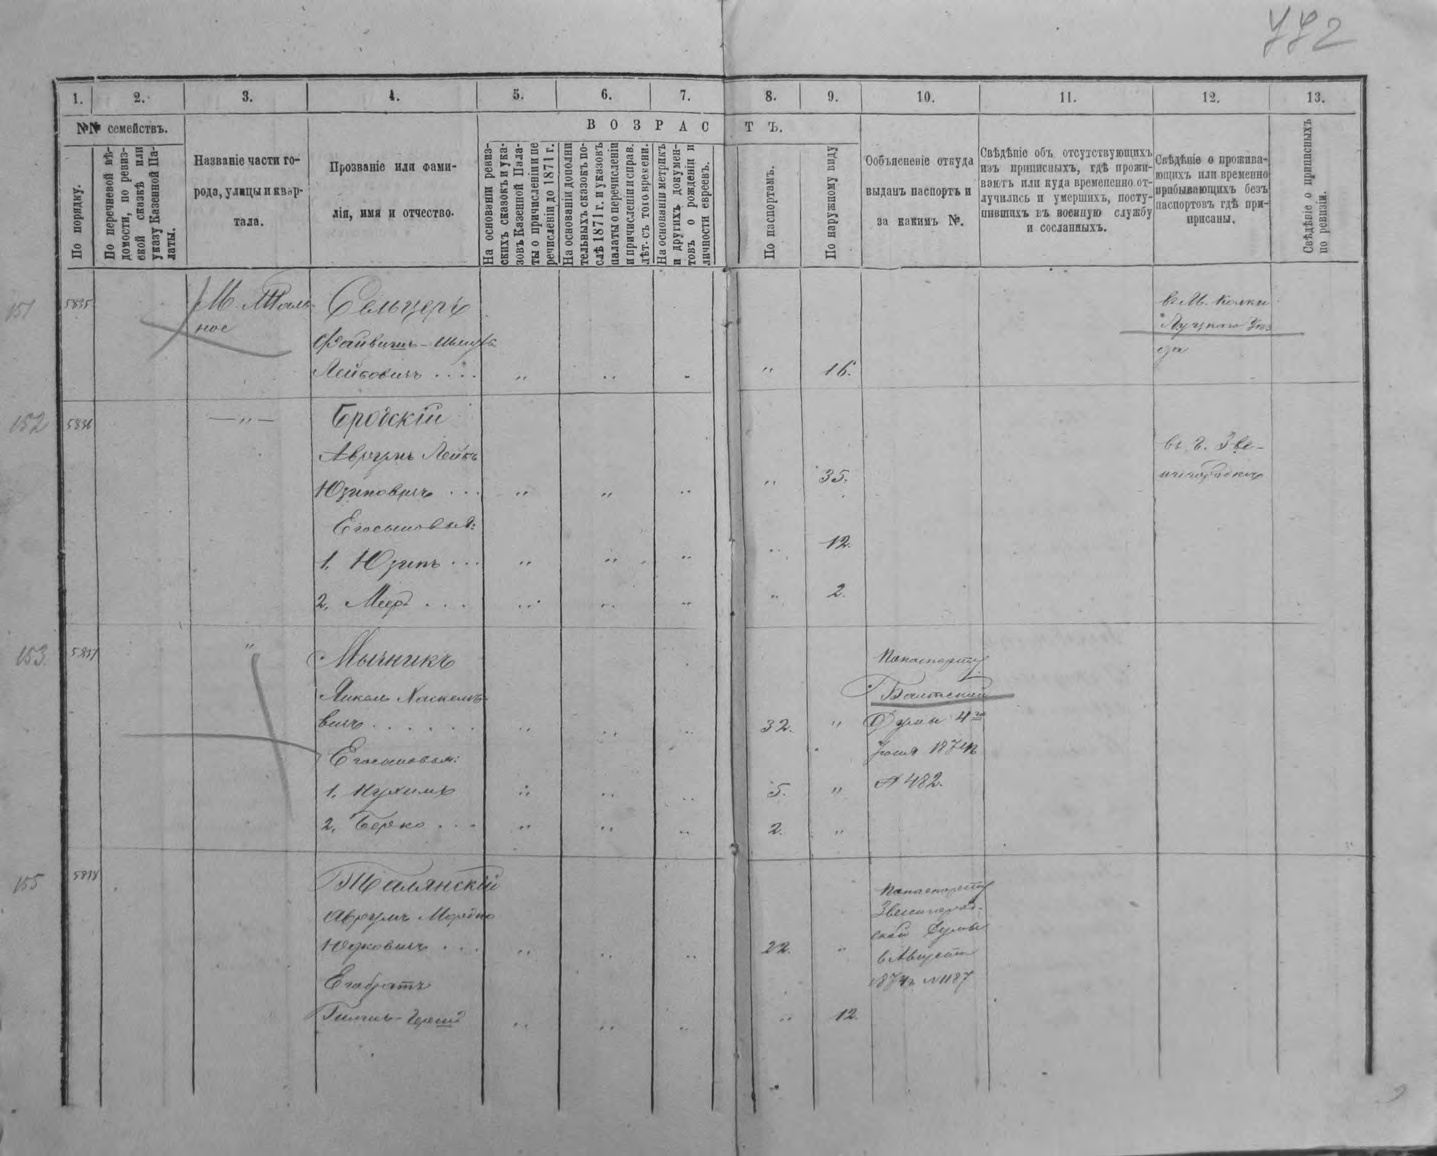 772
1. 2. 3. 4. 5. 6. 7. 8. 9. 10. 11. 12. 13.
№№ семействъ.
В О З Р А С Т Ъ.
По порядку.
По перечневой вѣ-
домости, по ревиз-
ской сказкѣ или
указу Казенной Па-
латы.
Названіе части го-
рода, улицы и квар-
тала.
Прозваніе или фами-
лія, имя и отчество.
На основаніи ревиз-
скихъ сказокъ и ука-
зовъ Казенной Пала-
ты о причисленіи и пе
речисленіи до 1871 г.
На основаніи дополни
тельныхъ сказокъ по-
слѣ 1871 г. и указовъ
палаты о перечисленіи
и причисленіи и справ.
лѣт. съ того времени.
На основаніи метрикъ
и другихъ докумен-
товъ о рожденіи и
личности евреевъ.
По паспортамъ.
По наружному виду
Объясненіе откуда
выданъ паспортъ и
за какимъ №.
Свѣдѣніе объ отсутствующихъ
изъ приписныхъ, гдѣ прожи-
ваютъ или куда временно от-
лучились и умершихъ, посту-
пившихъ въ военную службу
и сосланныхъ.
Свѣдѣніе о прожива-
ющихъ или временно
прибывающихъ безъ
паспортовъ гдѣ при-
писаны.
Свѣдѣніе о приписныхъ
по ревизіи.
151 5835 М. Таль- Сельцеръ в М. Колки
ное Файвишъ-Шмуль Луцкаго Уѣз
Лейбовичъ . . . . " " " " 16. да
152 5836 — " — Бродскій
Аврумъ Лейбъ въ г. Зве-
Юзиповичъ . . . " " " " 35. нигородкѣ
Его сыновья:
1. Юзипъ . . . " " " " 12.
2. Меер . . . " " " " 2.
153 5837 " Мычникъ По паспорту
Янкель Хаскеле- Балтской
вичъ . . . . . . " " " 32. " Думы 4го
Его сыновья: Іюля 1874г
1. Нухимъ " " " 5. " № 482.
2. Берко . . . " " " 2. "
155 5838 Талянскій По паспорту
Аврумъ Мордко Звенигород-
Юдковичъ . . . " " " 22. " ской Думы
Его братъ в Августѣ
" " " " 12. 1874г №1187